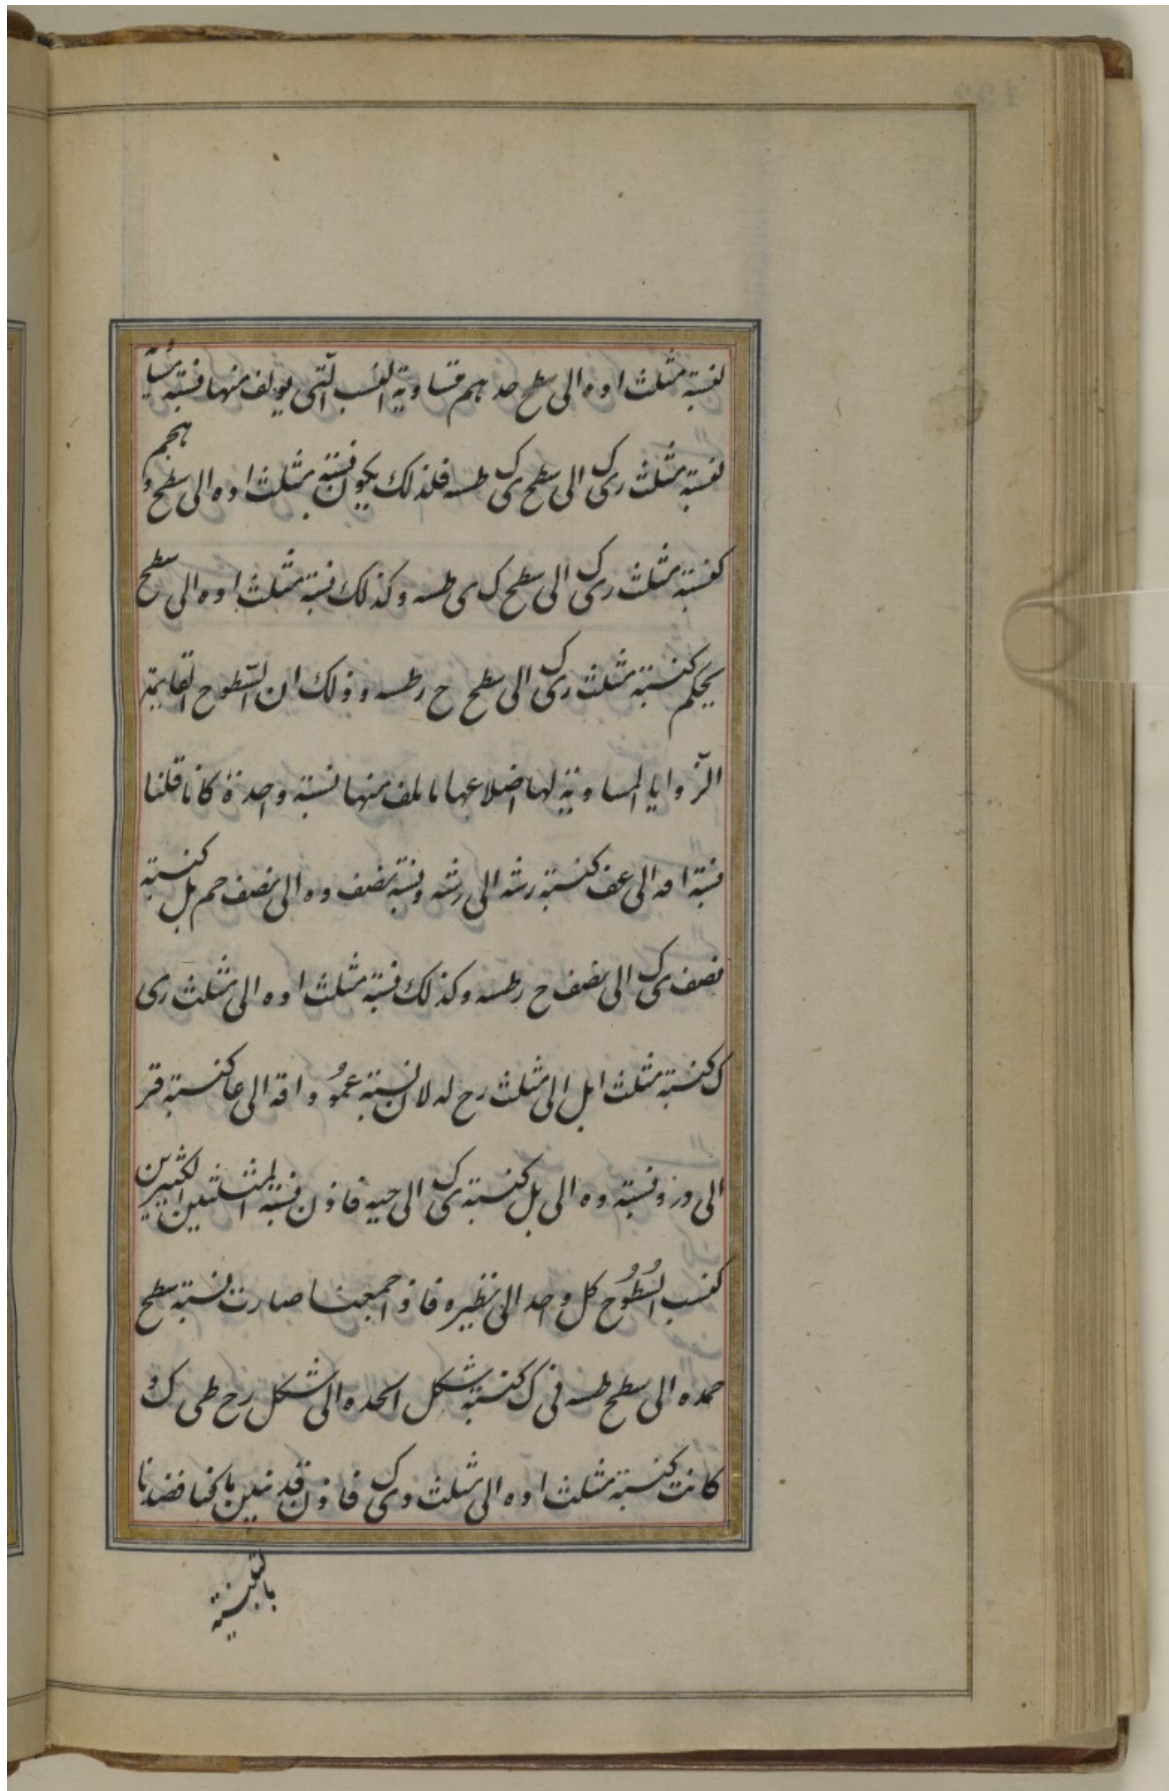 لنسبة مثلث اوه الى سطح حد هم متساوية النسب التى يولف منها فنسبة
لنسبة مثلث رى ك الى سطح ى ك طسه فلذلك يكون نسبة مثلث اوه الى سطح و هجم
كنسبة مثلث رى ك الى سطح ك ى طسه وكذلك نسبة مثلث اوه الى سطح
يحكم كنسبة مثلث رى ك الى سطح ح رطسه وذلك ان السطوح القايمة
الزوايا المساوية لها اضلاعها منها نسبة واحدة كانا قلنا
نسبة اقه الى عف كنسبة رشه الى رشه ونسبة نصف وه الى نصف حم بل كنسبة
نصف ى ك الى نصف ح رطسه وكذلك نسبة مثلث اوه الى مثلث رى
ك كنسبة مثلث ابل الى مثلث رح له لان نسبة عمود اقه الى عا كنسبة قر
الى ور ونسبة وه الى بل كنسبة ى ك الى حيه فاذن نسبة المثلثين الكثيرين
كنسب السطوح كل واحد الى نظيره فاذا جمعنا صارت نسبة سطح
حمده الى سطح طسه فى ك كنسبة شكل احده الى شكل رح طى ك و
كانت كنسبة مثلث اوه الى مثلث وى ك فاذن قد تبين ما كنا قصدنا
بالنسبة